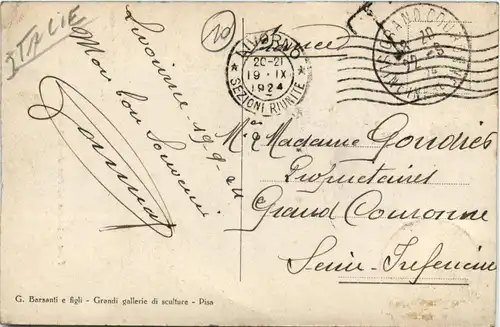 ITALIE
20
Livourne - 19-9-24
Mon bon Souvenir
LIVORNO
20-21
19 · IX
1924
* SEZIONI RIUNITE *
Madame
Propriétaires
Grand Couronne
Seine-Inférieure
G. Barsanti e figli - Grandi gallerie di sculture - Pisa